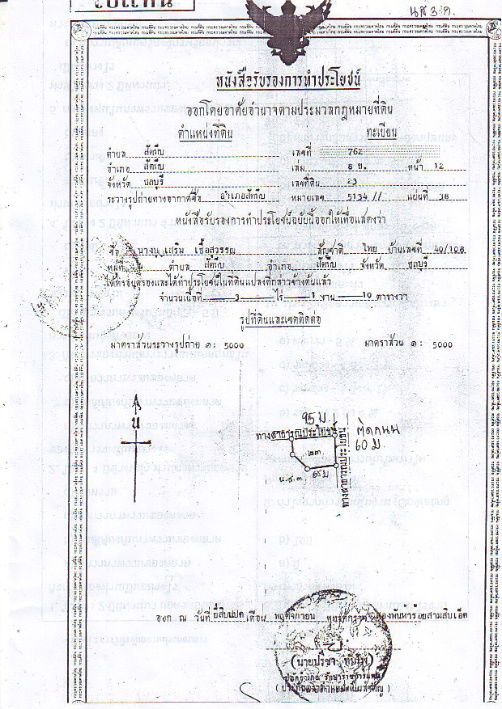 ใบแทน
น.ส.๓.ก.
หนังสือรับรองการทำประโยชน์
ออกโดยอาศัยอำนาจตามประมวลกฎหมายที่ดิน
ตำแหน่งที่ดิน ทะเบียน
ตำบล สัตหีบ เลขที่ 762
อำเภอ สัตหีบ เล่ม 8 ข. หน้า 12
จังหวัด ชลบุรี เลขที่ดิน 23
ระวางรูปถ่ายทางอากาศชื่อ อำเภอสัตหีบ หมายเลข 5134 // แผ่นที่ 38
หนังสือรับรองการทำประโยชน์ฉบับนี้ออกให้เพื่อแสดงว่า
สัญชาติ ไทย บ้านเลขที่ 40/108
หมู่ที่ ตำบล สัตหีบ อำเภอ สัตหีบ จังหวัด ชลบุรี
ได้ครอบครองและได้ทำประโยชน์ในที่ดินแปลงที่กล่าวข้างต้นแล้ว
จำนวนเนื้อที่ 3 ไร่ 1 งาน 10 ตารางวา
รูปที่ดินและเขตติดต่อ
มาตราส่วนระวางรูปถ่าย ๑: 5000 มาตราส่วน ๑: 5000
95 ม
ทางสาธารณประโยชน์
ติดถนน
60 ม.
น
๒๓
น.ส.๓.
ออก ณ วันที่ ยี่สิบแปด เดือน พฤศจิกายน พุทธศักราช สองพันห้าร้อยสามสิบเอ็ด